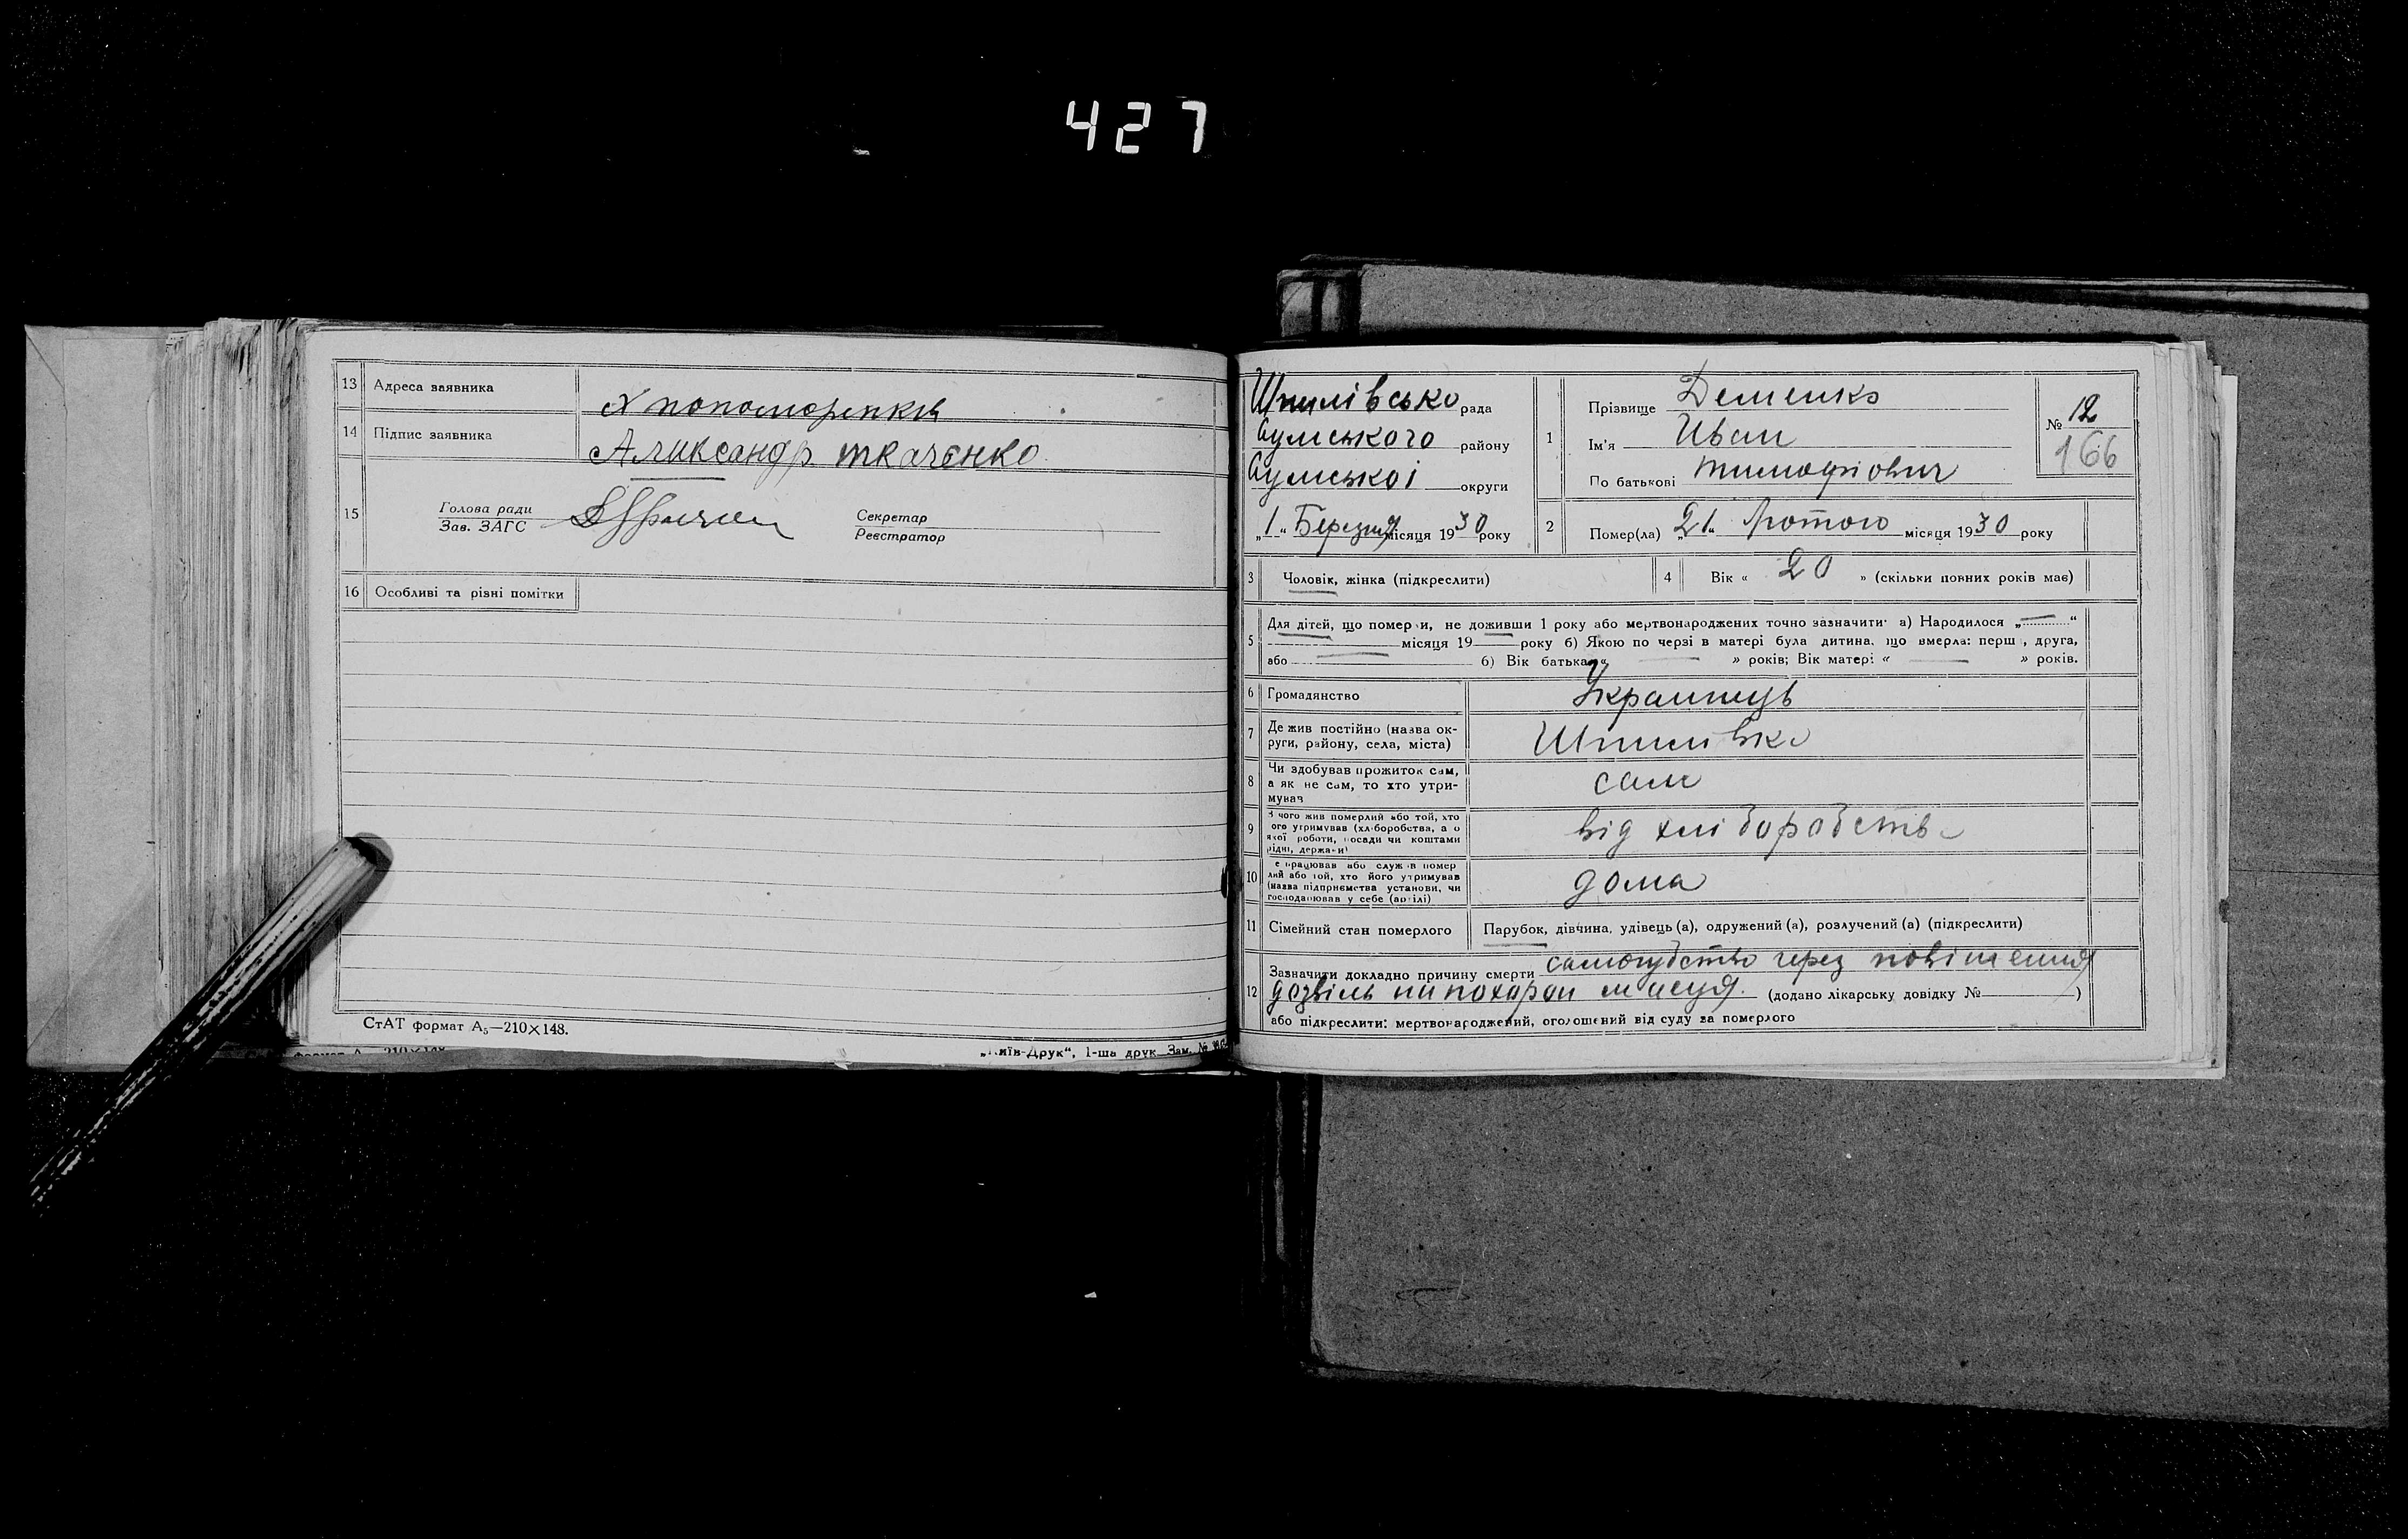 427
13 Адреса заявника Х пономаренків
14 Підпис заявника Александр ткаченко
15 Голова ради
Зав. ЗАГС
Секретар
Реєстратор
16 Особливі та різні помітки
СтАТ формат А₅—210×148.
формат А 210×148
„Київ-Друк“, 1-ша друк. Зам. №
Шпилівсько рада
Сумського району
Сумськоі округи
„1“ Березня місяця 1930 року
1 Прізвище Деменко
Ім'я Иван
По батькові тимофіович
№ 12
166
2 Помер(ла) „21“ Лютого місяця 1930 року
3 Чоловік, жінка (підкреслити)
4 Вік « 20 » (скільки повних років має)
5 Для дітей, що померли, не доживши 1 року або мертвонароджених точно зазначити: а) Народилося „ “
місяця 19 року б) Якою по черзі в матері була дитина, що вмерла: перш , друга,
або б) Вік батька « » років; Вік матері « » років.
6 Громадянство Украинець
7 Де жив постійно (назва ок-
руги, району, села, міста) Шпилівка
8 Чи здобував прожиток сам,
а як не сам, то хто утри-
мував сам
9 З чого жив померлий або той, хто
його утримував (хліборобства, а о
якої роботи, посади чи коштами
рідні, держави) від хліборобства
10 е працював або служив помер
лий або той, хто його утримував
(назва підприємства установи, чи
господарював у себе (артілі) дома
11 Сімейний стан померлого Парубок, дівчина, удівець (а), одружений (а), розлучений (а) (підкреслити)
12 Зазначити докладно причину смерти самогубство через повішення
дозвіль на похорон (додано лікарську довідку № )
або підкреслити: мертвонароджений, оголошений від суду за померлого